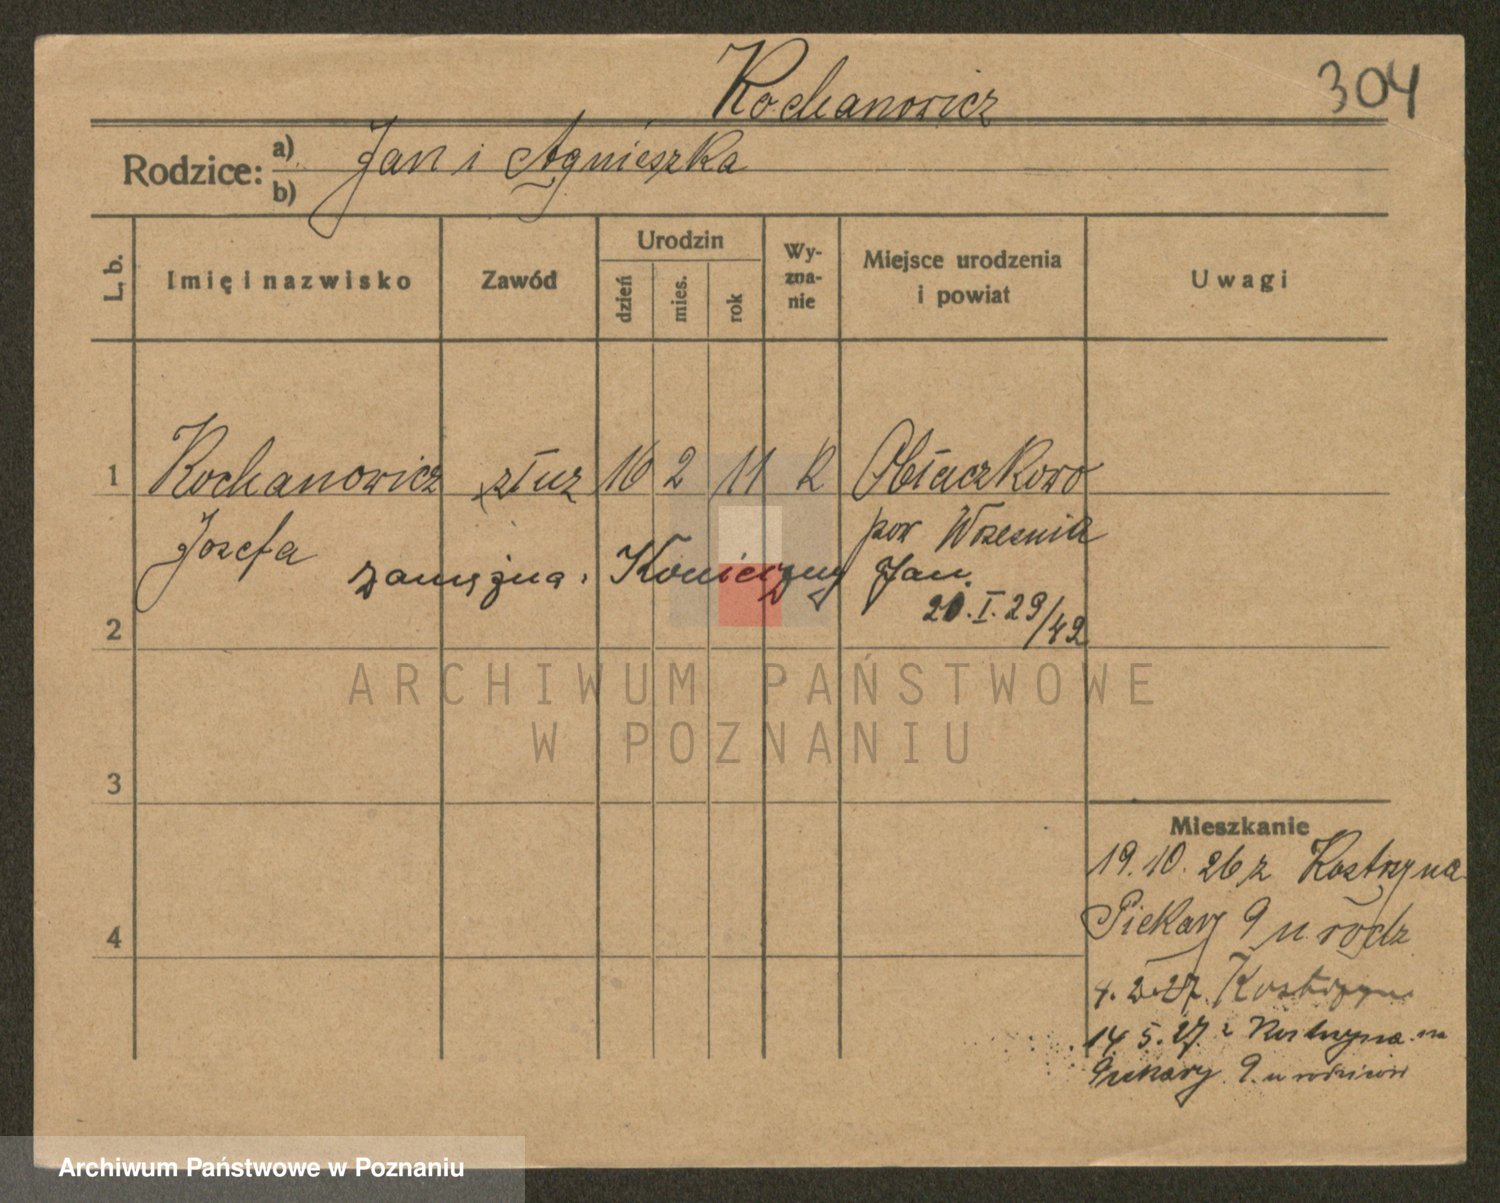 Kochanowicz 304
Rodzice: a) Jan i Agnieszka
b)
L. b. Imię i nazwisko Zawód Urodzin dzień mies. rok Wy-zna-nie Miejsce urodzenia i powiat Uwagi
1 Kochanowicz służ 16 2 11 k Obłaczkowo
Josefa pow Wrzesnia
zamężna: Konieczny Jan.
20.I.29/42
2
ARCHIWUM PAŃSTWOWE
W POZNANIU
3
Mieszkanie
19.10.26 z Kostrzyna
4
Piekary 9 u rodz
4.2.27. Kostrzyn
14 5.27. z Kostrzyna na
Piekary 9. u rodziców
Archiwum Państwowe w Poznaniu